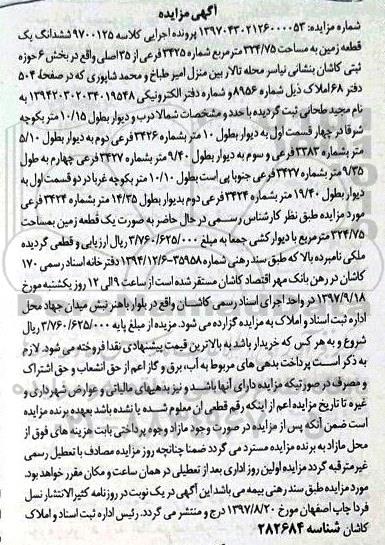 آگهی مزایده
شماره مزایده: ۱۳۹۷۰۴۳۰۲۱۲۶۰۰۰۰۵۳ پرونده اجرایی کلاسه ۹۷۰۰۱۲۵ ششدانگ یک
قطعه زمین به مساحت ۳۲۴/۷۵ متر مربع شماره ۳۴۲۵ فرعی از ۳۵ اصلی واقع در بخش ۶ حوزه
ثبتی کاشان بنشانی نیاسر محله تالار بین منزل امیر طباخ و محمد شاپوری که در صفحه ۵۰۴
دفتر ۶۸ املاک ذیل شماره ۸۹۵۶ و شماره دفتر الکترونیکی ۱۳۹۴۲۰۳۰۲۰۳۴۰۱۹۵۴۸ به
نام مجید طحانی ثبت گردیده با حدود و مشخصات شمالا درب و دیوار بطول ۱۰/۱۵ متر بکوچه
شرقا در چهار قسمت اول به دیوار بطول ۱۰ متر بشماره ۳۴۲۶ فرعی دوم به دیوار بطول ۵/۱۰
متر بشماره ۳۳۸۳ فرعی و سوم به دیوار بطول ۹/۴۰ متر بشماره ۳۴۲۷ فرعی چهارم به طول
۹/۳۵ متر بشماره ۳۴۲۷ فرعی جنوبا پی است بطول ۱۰/۱۰ متر بکوچه غربا در دو قسمت اول به
دیوار بطول ۱۹/۴۰ متر بشماره ۳۴۲۴ فرعی دوم بدیوار بطول ۱۴/۳۵ متر بشماره ۳۴۲۴ فرعی
مورد مزایده طبق نظر کارشناس رسمی در حال حاضر به صورت یک قطعه زمین بمساحت
۳۲۴/۷۵ متر مربع با دیوار کشی جمعا به مبلغ ۳/۷۶۰/۶۲۵/۰۰۰ ریال ارزیابی و قطعی گردیده
ملکی نامبرده بالا که طبق سند رهنی شماره ۳۵۹۵۸-۱۳۹۴/۱۲/۶ دفترخانه اسناد رسمی ۱۷۰
کاشان در رهن بانک مهر اقتصاد کاشان مستقر شده است از ساعت ۹ الی ۱۲ روز یکشنبه مورخ
۱۳۹۷/۹/۱۸ در واحد اجرای اسناد رسمی کاشان واقع در بلوار باهنر نبش میدان جهاد محل
اداره ثبت اسناد و املاک به مزایده گزارده می شود. مزیده از مبلغ پایه ۳/۷۶۰/۶۲۵/۰۰۰ ریال
شروع و به هر کس که خریدار باشد به بالاترین قیمت پیشنهادی نقدا فروخته می شود. لازم
به ذکر است پرداخت بدهی های مربوط به آب، برق و گاز اعم از حق انشعاب و حق اشتراک
و مصرف در صورتیکه مزایده دارای آنها باشد و نیز بدهیهای مالیاتی و عوارض شهرداری و
غیره تا تاریخ مزایده اعم از اینکه رقم قطعی آن معلوم شده یا نشده باشد بعهده برنده مزایده
است ضمن آنکه پس از مزایده در صورت وجود مازاد وجوه پرداختی بابت هزینه های فوق از
محل مازاد به برنده مزایده مسترد می گردد ضمنا چنانچه روز مزایده مصادف با تعطیل رسمی
غیر مترقبه گردد مزایده اولین روز اداری بعد از تعطیلی در همان ساعت و مکان مقرر خواهد بود.
مورد مزایده طبق سند رهنی بیمه می باشد این آگهی در یک نوبت در روزنامه کثیرالانتشار نسل
فردا چاپ اصفهان مورخ ۱۳۹۷/۸/۲۰ درج و منتشر می گردد. رئیس اداره ثبت اسناد و املاک
کاشان شناسه ۲۸۲۶۸۴